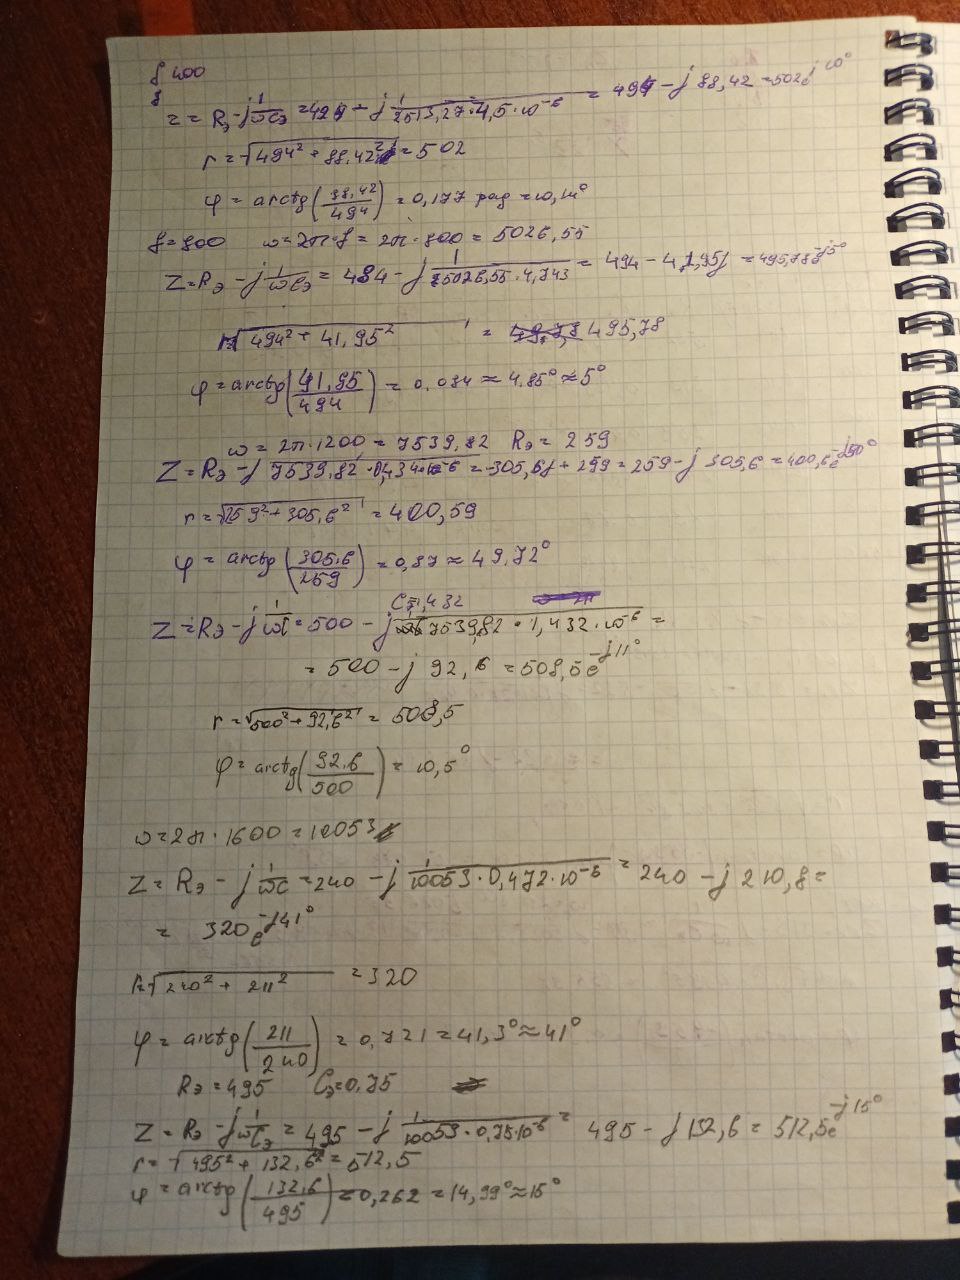 f 400
Z = Rэ - j 1/ωCэ = 494 - j 1/(2513,27·4,5·10⁻⁶) = 494 - j 88,42 = 502 e^j10°
r = √(494² + 88,42²) = 502
φ = arctg(88,42/494) = 0,177 рад = 10,14°
f = 800 ω = 2π·f = 2π·800 = 5026,55
Z = Rэ - j 1/ωCэ = 494 - j 1/(5026,55·4,743) = 494 - 41,95j = 495,78 e^-j5°
r = √(494² + 41,95²) = 495,78
φ = arctg(41,95/494) = 0,084 ≈ 4,85° ≈ 5°
ω = 2π·1200 = 7539,82 Rэ = 259
Z = Rэ - j 1/(7539,82·0,434·10⁻⁶) = -305,6j + 259 = 259 - j 305,6 = 400,6 e^-j50°
r = √(259² + 305,6²) = 400,59
φ = arctg(305,6/259) = 0,87 ≈ 49,72°
Cэ=1,432
Z = Rэ - j 1/ωC = 500 - j 1/(7539,82·1,432·10⁻⁶) =
= 500 - j 92,6 = 508,5 e^-j11°
r = √(500² + 92,6²) = 508,5
φ = arctg(92,6/500) = 10,5°
ω = 2π·1600 = 10053
Z = Rэ - j 1/ωC = 240 - j 1/(10053·0,472·10⁻⁶) = 240 - j 210,8 =
= 320 e^-j41°
r = √(240² + 211²) = 320
φ = arctg(211/240) = 0,721 = 41,3° ≈ 41°
Rэ = 495 Cэ = 0,75
Z = Rэ - j 1/ωCэ = 495 - j 1/(10053·0,75·10⁻⁶) = 495 - j 132,6 = 512,5 e^-j15°
r = √(495² + 132,6²) = 512,5
φ = arctg(132,6/495) = 0,262 = 14,99° ≈ 15°